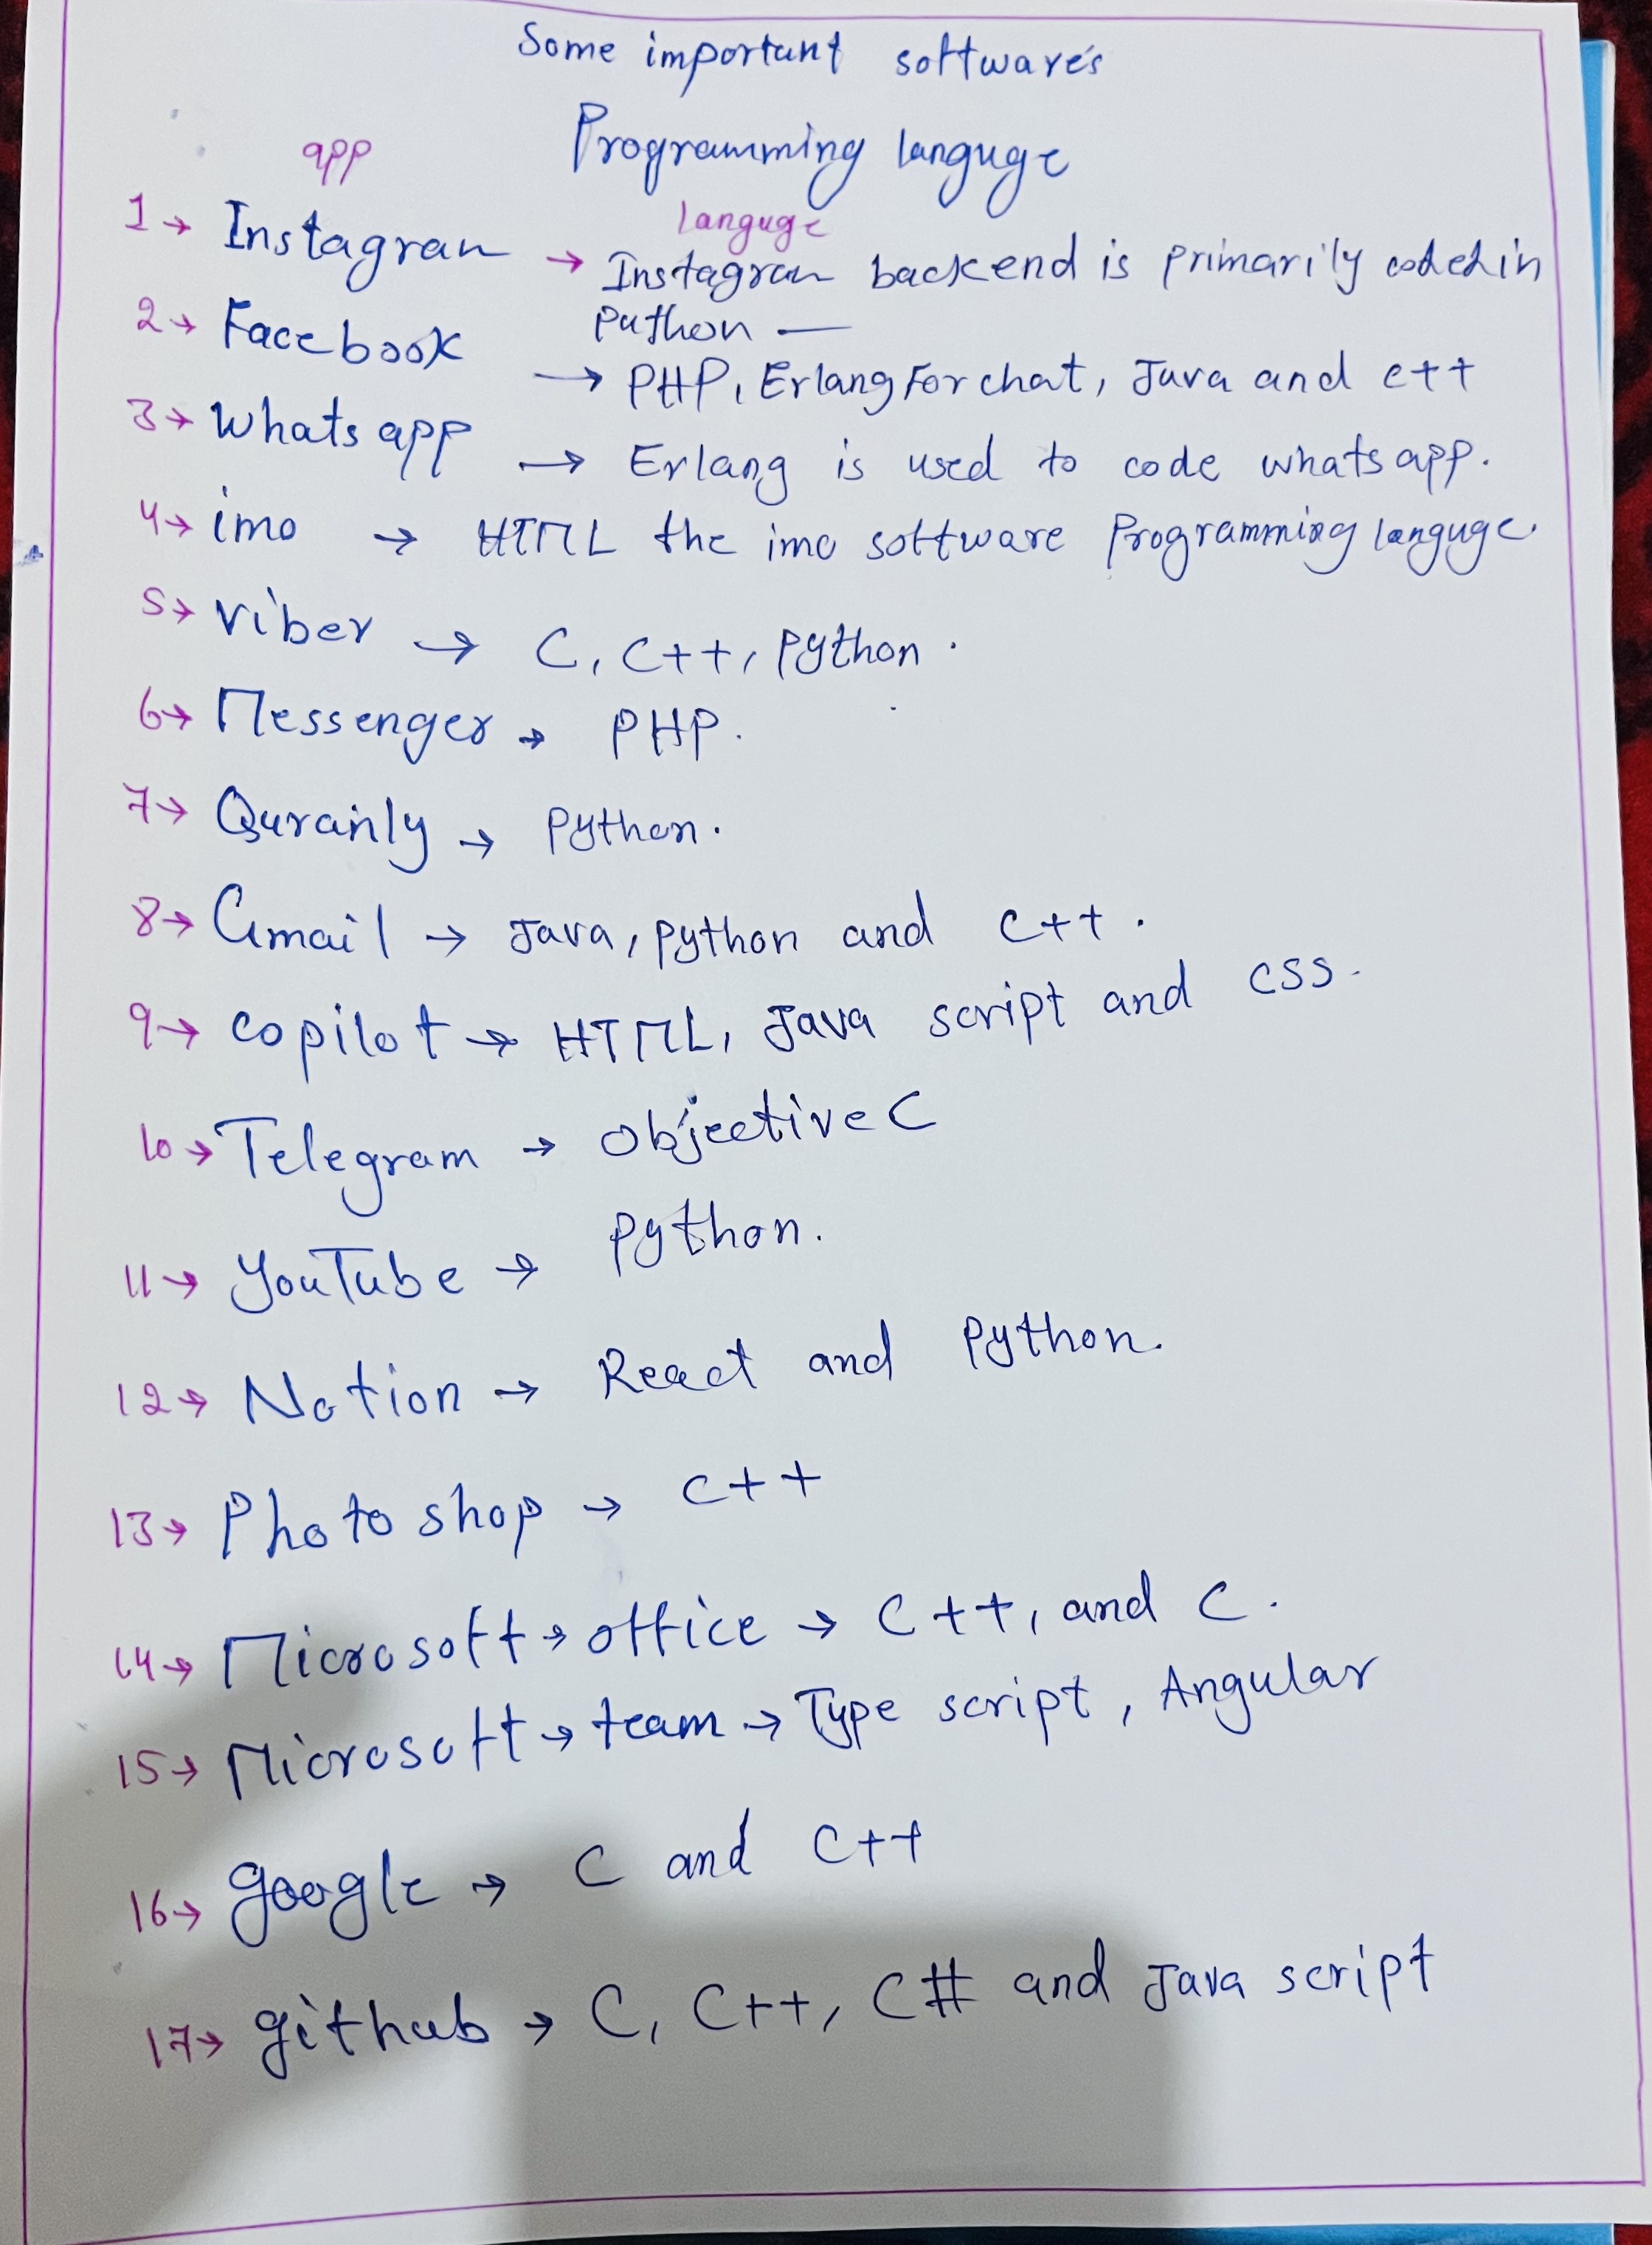 Some important software's
Programming languge
app
languge
1→ Instagram → Instagram backend is primarily coded in
Puthon —
2→ Facebook → PHP, Erlang For chat, Java and c++
3→ Whats app → Erlang is used to code whats app.
4→ imo → HTML the imo software Programming languge.
5→ viber → C, C++, Python.
6→ Messenger → PHP.
7→ Quranly → Python.
8→ Gmail → Java, python and C++.
9→ copilot → HTML, Java script and CSS.
10→ Telegram → Objective C
11→ YouTube → Python.
12→ Notion → React and Python.
13→ Photo shop → C++
14→ Microsoft → office → C++, and C.
15→ Microsoft → team → Type script, Angular
16→ google → C and C++
17→ github → C, C++, C# and Java script